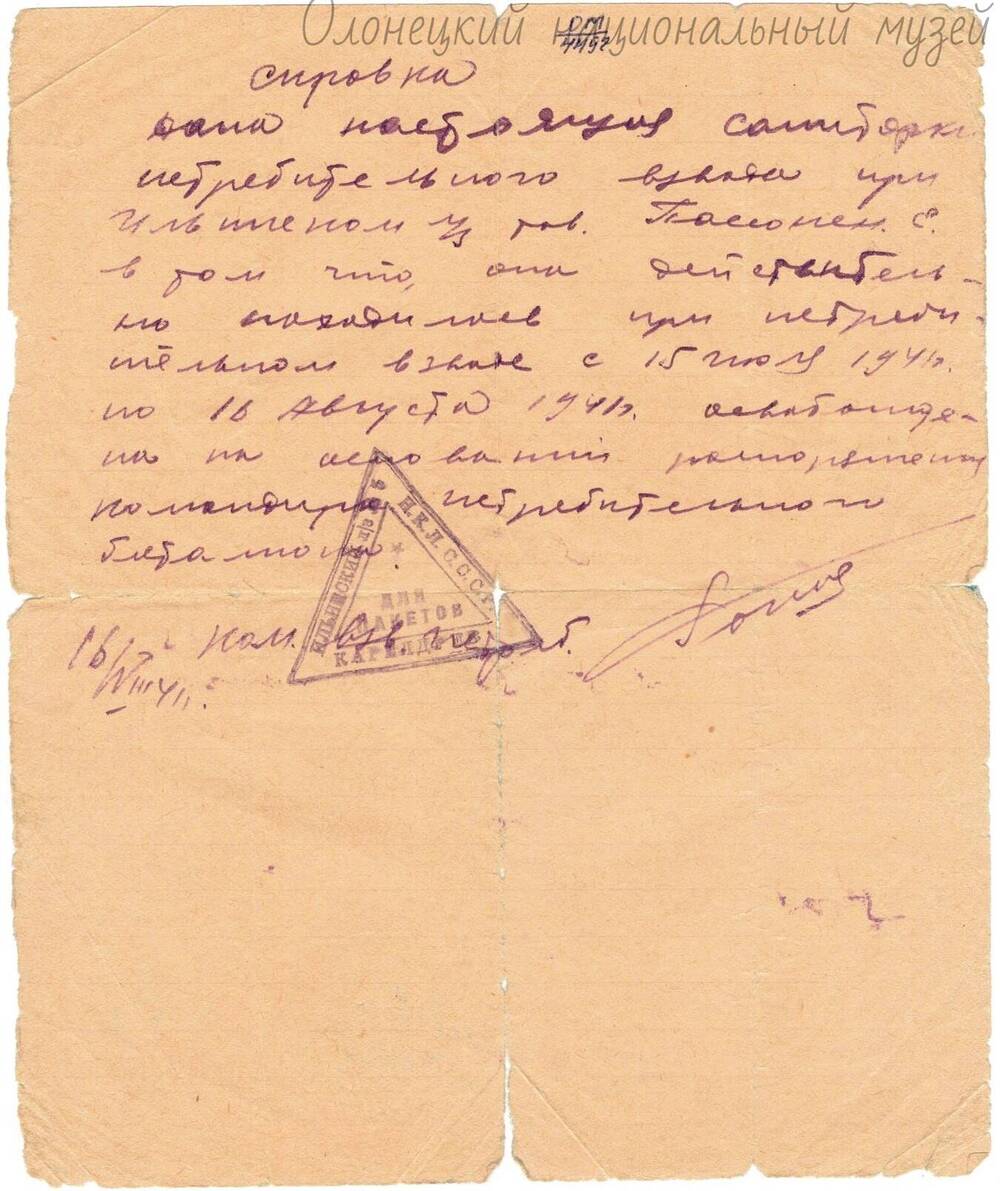 Олонецкий национальный музей
ОМ
4492
справка
дана настоящая санитарке
истребительного взвода при
Ильинском тов. Пассонен. Е.
в том что, она действитель-
но находилась при истреби-
тельном взводе с 15 июля 1941г.
по 16 Августа 1941г. освобожде-
на на основании распоряжения
командира истребительного
батальона
16/VIII 41г. Ком. взв. истреб.
ИЛЬИНСКИЙ л/з-д
Н.К.Л.С.С.С.Р.
ДЛЯ
ПАКЕТОВ